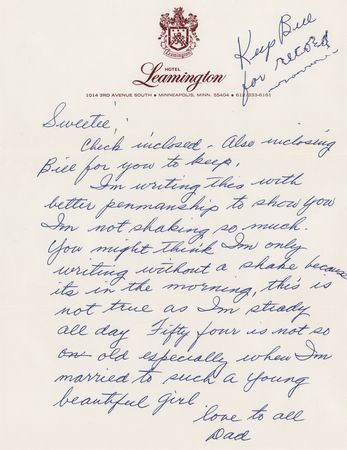 Leamington
HOTEL
Leamington
1014 3RD AVENUE SOUTH • MINNEAPOLIS, MINN. 55404 • 612/333-6161
Keep Bill
for record
Sweetee!
Check inclosed - Also inclosing
Bill for you to keep.
I'm writing this with
better penmanship to show you
I'm not shaking so much.
You might think I'm only
writing without a shake because
its in the morning, this is
not true as I'm steady
all day Fifty four is not so
on old especially when I'm
married to such a young
beautiful girl
love to all
Dad